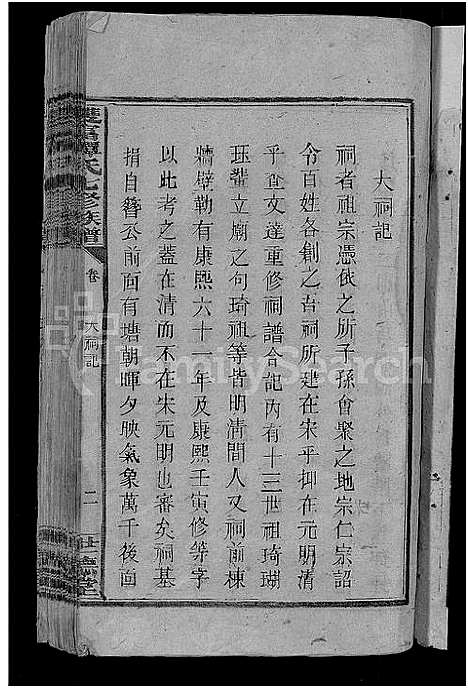 大祠記
祠者祖宗憑依之所子孫會聚之地宗仁宗詔
令百姓各創之吾祠所建在宋乎抑在元明清
乎查文達重修祠譜合記內有十三世祖琦瑚
珏輩立廟之句琦祖等皆明清間人又祠前棟
牆壁勒有康熙六十一年及康熙壬寅修等字
以此考之蓋在清而不在宋元明也審矣祠基
捐自簪公前面有塘朝暉夕映氣象萬千後面
譚氏七修族譜
卷
大祠記
二
FamilySearch